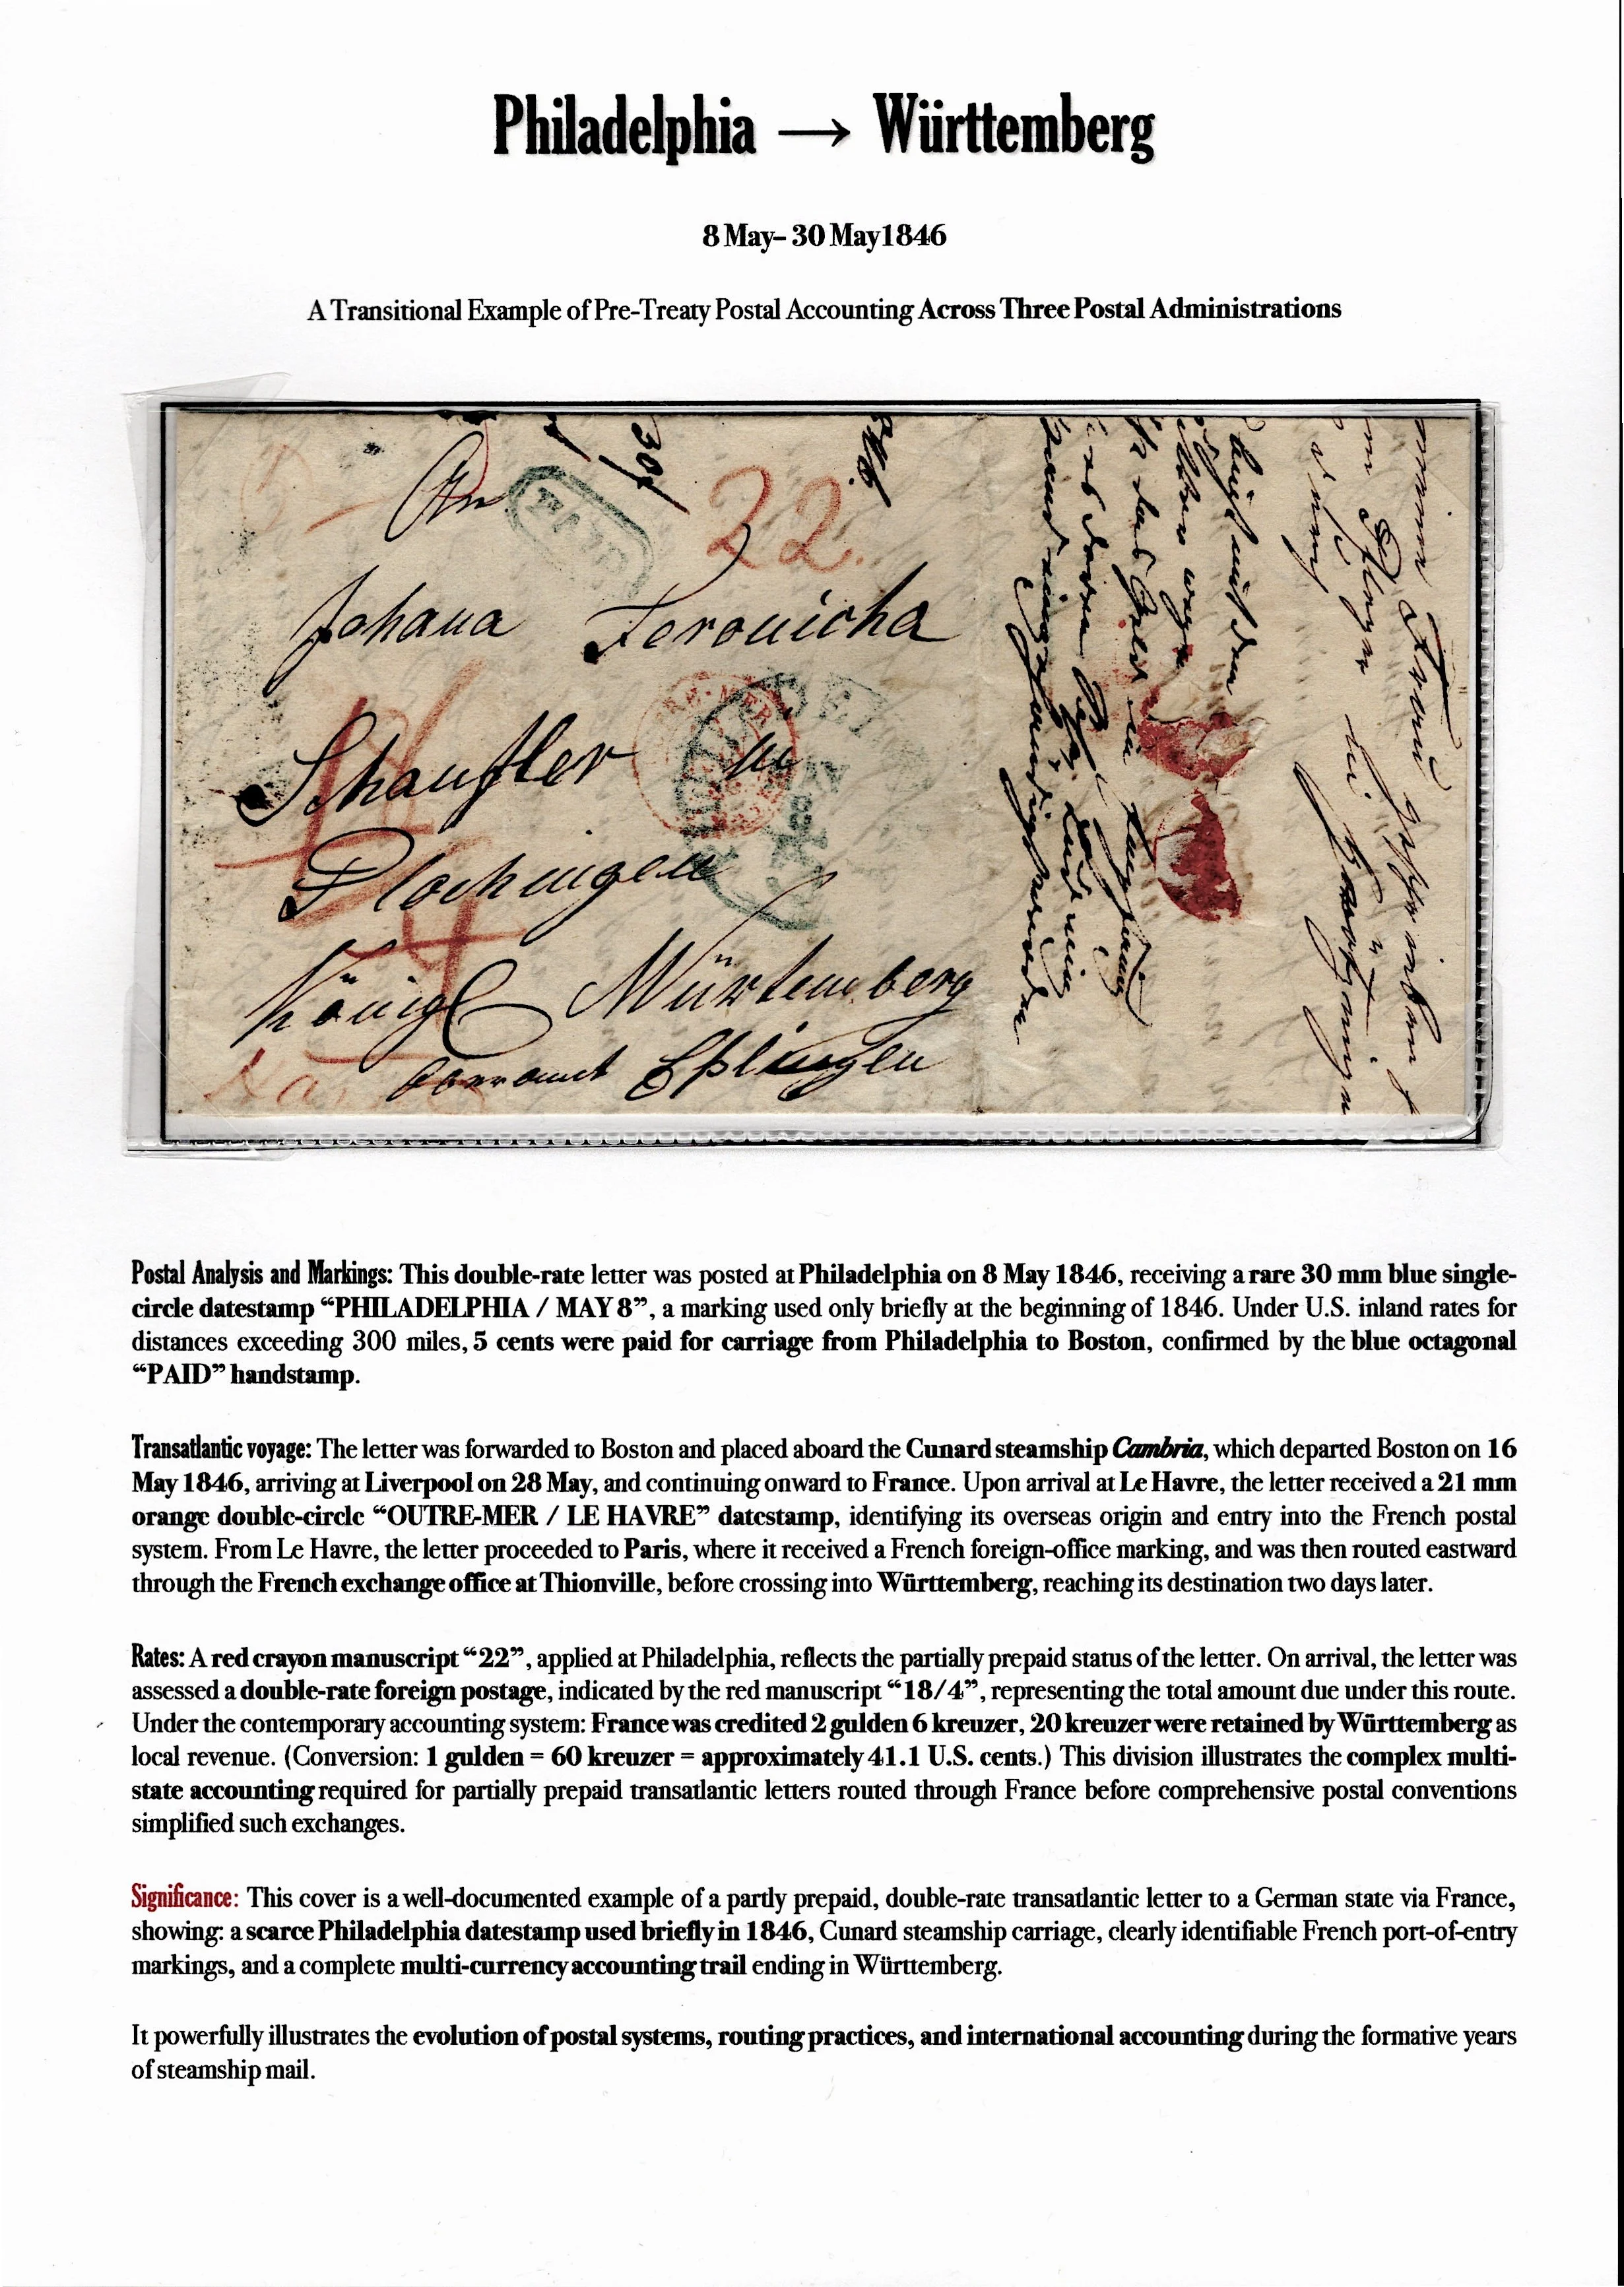 Philadelphia → Württemberg
8 May– 30 May1846
A Transitional Example of Pre-Treaty Postal Accounting Across Three Postal Administrations
An
PAID
22.
Johana
Schaufler in
Plochingen
Königl Würtemberg
Oberamt Eßlingen
MAY
8
Postal Analysis and Markings: This double-rate letter was posted at Philadelphia on 8 May 1846, receiving a rare 30 mm blue single-
circle datestamp “PHILADELPHIA / MAY 8”, a marking used only briefly at the beginning of 1846. Under U.S. inland rates for
distances exceeding 300 miles, 5 cents were paid for carriage from Philadelphia to Boston, confirmed by the blue octagonal
“PAID” handstamp.
Transatlantic voyage: The letter was forwarded to Boston and placed aboard the Cunard steamship Cambria, which departed Boston on 16
May 1846, arriving at Liverpool on 28 May, and continuing onward to France. Upon arrival at Le Havre, the letter received a 21 mm
orange double-circle “OUTRE-MER / LE HAVRE” datestamp, identifying its overseas origin and entry into the French postal
system. From Le Havre, the letter proceeded to Paris, where it received a French foreign-office marking, and was then routed eastward
through the French exchange office at Thionville, before crossing into Württemberg, reaching its destination two days later.
Rates: A red crayon manuscript “22”, applied at Philadelphia, reflects the partially prepaid status of the letter. On arrival, the letter was
assessed a double-rate foreign postage, indicated by the red manuscript “18/4”, representing the total amount due under this route.
Under the contemporary accounting system: France was credited 2 gulden 6 kreuzer, 20 kreuzer were retained by Württemberg as
local revenue. (Conversion: 1 gulden = 60 kreuzer = approximately 41.1 U.S. cents.) This division illustrates the complex multi-
state accounting required for partially prepaid transatlantic letters routed through France before comprehensive postal conventions
simplified such exchanges.
Significance: This cover is a well-documented example of a partly prepaid, double-rate transatlantic letter to a German state via France,
showing: a scarce Philadelphia datestamp used briefly in 1846, Cunard steamship carriage, clearly identifiable French port-of-entry
markings, and a complete multi-currency accounting trail ending in Württemberg.
It powerfully illustrates the evolution of postal systems, routing practices, and international accounting during the formative years
of steamship mail.